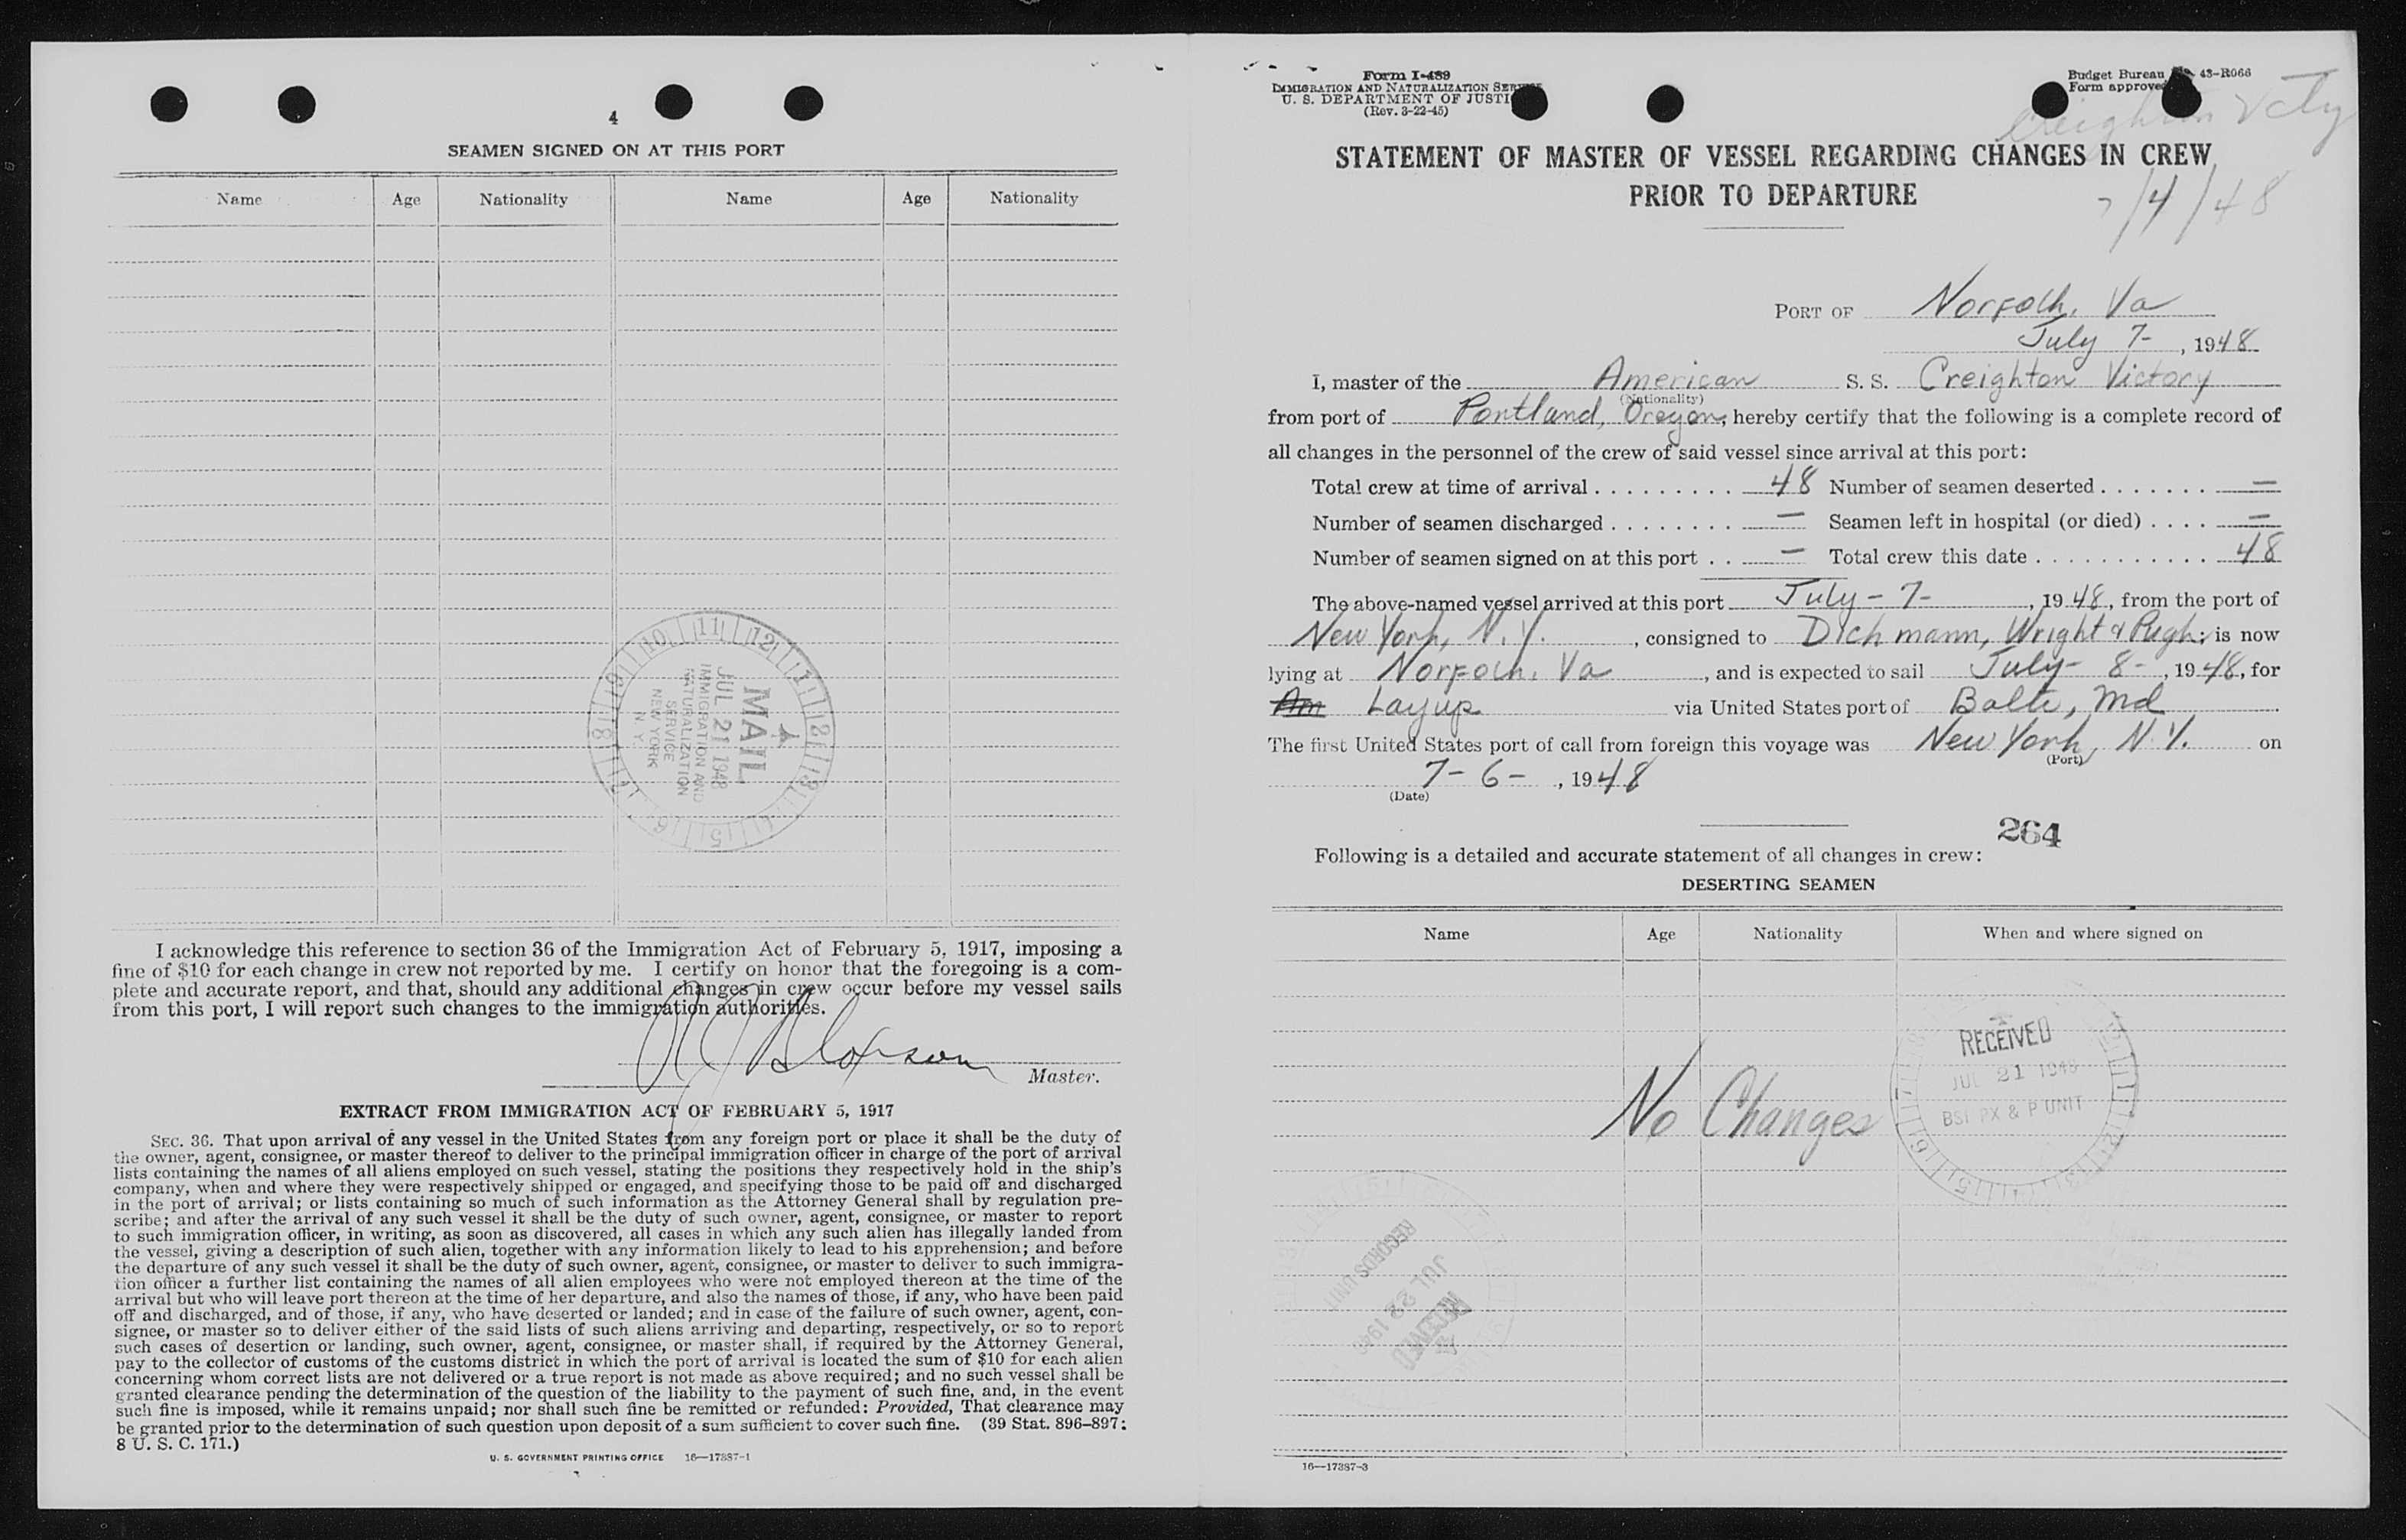 4
SEAMEN SIGNED ON AT THIS PORT
Name Age Nationality Name Age Nationality
MAIL
JUL 21 1948
IMMIGRATION AND
NATURALIZATION
SERVICE
NEW YORK
N. Y.
I acknowledge this reference to section 36 of the Immigration Act of February 5, 1917, imposing a
fine of $10 for each change in crew not reported by me. I certify on honor that the foregoing is a com-
plete and accurate report, and that, should any additional changes in crew occur before my vessel sails
from this port, I will report such changes to the immigration authorities.
Master.
EXTRACT FROM IMMIGRATION ACT OF FEBRUARY 5, 1917
SEC. 36. That upon arrival of any vessel in the United States from any foreign port or place it shall be the duty of
the owner, agent, consignee, or master thereof to deliver to the principal immigration officer in charge of the port of arrival
lists containing the names of all aliens employed on such vessel, stating the positions they respectively hold in the ship's
company, when and where they were respectively shipped or engaged, and specifying those to be paid off and discharged
in the port of arrival; or lists containing so much of such information as the Attorney General shall by regulation pre-
scribe; and after the arrival of any such vessel it shall be the duty of such owner, agent, consignee, or master to report
to such immigration officer, in writing, as soon as discovered, all cases in which any such alien has illegally landed from
the vessel, giving a description of such alien, together with any information likely to lead to his apprehension; and before
the departure of any such vessel it shall be the duty of such owner, agent, consignee, or master to deliver to such immigra-
tion officer a further list containing the names of all alien employees who were not employed thereon at the time of the
arrival but who will leave port thereon at the time of her departure, and also the names of those, if any, who have been paid
off and discharged, and of those, if any, who have deserted or landed; and in case of the failure of such owner, agent, con-
signee, or master so to deliver either of the said lists of such aliens arriving and departing, respectively, or so to report
such cases of desertion or landing, such owner, agent, consignee, or master shall, if required by the Attorney General,
pay to the collector of customs of the customs district in which the port of arrival is located the sum of $10 for each alien
concerning whom correct lists are not delivered or a true report is not made as above required; and no such vessel shall be
granted clearance pending the determination of the question of the liability to the payment of such fine, and, in the event
such fine is imposed, while it remains unpaid; nor shall such fine be remitted or refunded: Provided, That clearance may
be granted prior to the determination of such question upon deposit of a sum sufficient to cover such fine. (39 Stat. 896-897;
8 U. S. C. 171.)
U. S. GOVERNMENT PRINTING OFFICE 16—17387-1
Form I-489
IMMIGRATION AND NATURALIZATION
U. S. DEPARTMENT OF
(Rev. 3-22-45)
Budget Bureau No. 43-R066
Form approved
Creighton Vcty
7/4/48
STATEMENT OF MASTER OF VESSEL REGARDING CHANGES IN CREW
PRIOR TO DEPARTURE
PORT OF Norfolk, Va
July 7-, 1948
I, master of the American S. S. Creighton Victory
(Nationality)
from port of Portland, Oregon, hereby certify that the following is a complete record of
all changes in the personnel of the crew of said vessel since arrival at this port:
Total crew at time of arrival . . . . . . . . . 48 Number of seamen deserted . . . . . . . —
Number of seamen discharged . . . . . . . . — Seamen left in hospital (or died) . . . . —
Number of seamen signed on at this port . . — Total crew this date . . . . . . . . . . . 48
The above-named vessel arrived at this port July - 7-, 1948, from the port of
New York, N. Y., consigned to Dichmann, Wright & Pugh; is now
lying at Norfolk, Va, and is expected to sail July- 8-, 1948, for
Layup via United States port of Balto, Md
The first United States port of call from foreign this voyage was New York, N. Y. on
(Port)
7- 6-, 1948
(Date)
264
Following is a detailed and accurate statement of all changes in crew:
DESERTING SEAMEN
Name Age Nationality When and where signed on
RECEIVED
JUL 21 1948
BSI PX & P UNIT
No Changes
RECORDS UNIT
JUL 22 1948
RECEIVED
16—17387-3